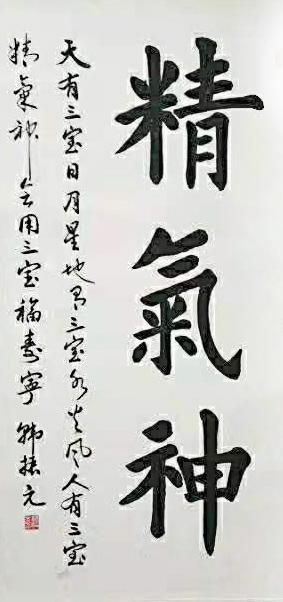 精氣神
天有三宝日月星地有三宝水火风人有三宝
精氣神会用三宝福寿寧 韩振元